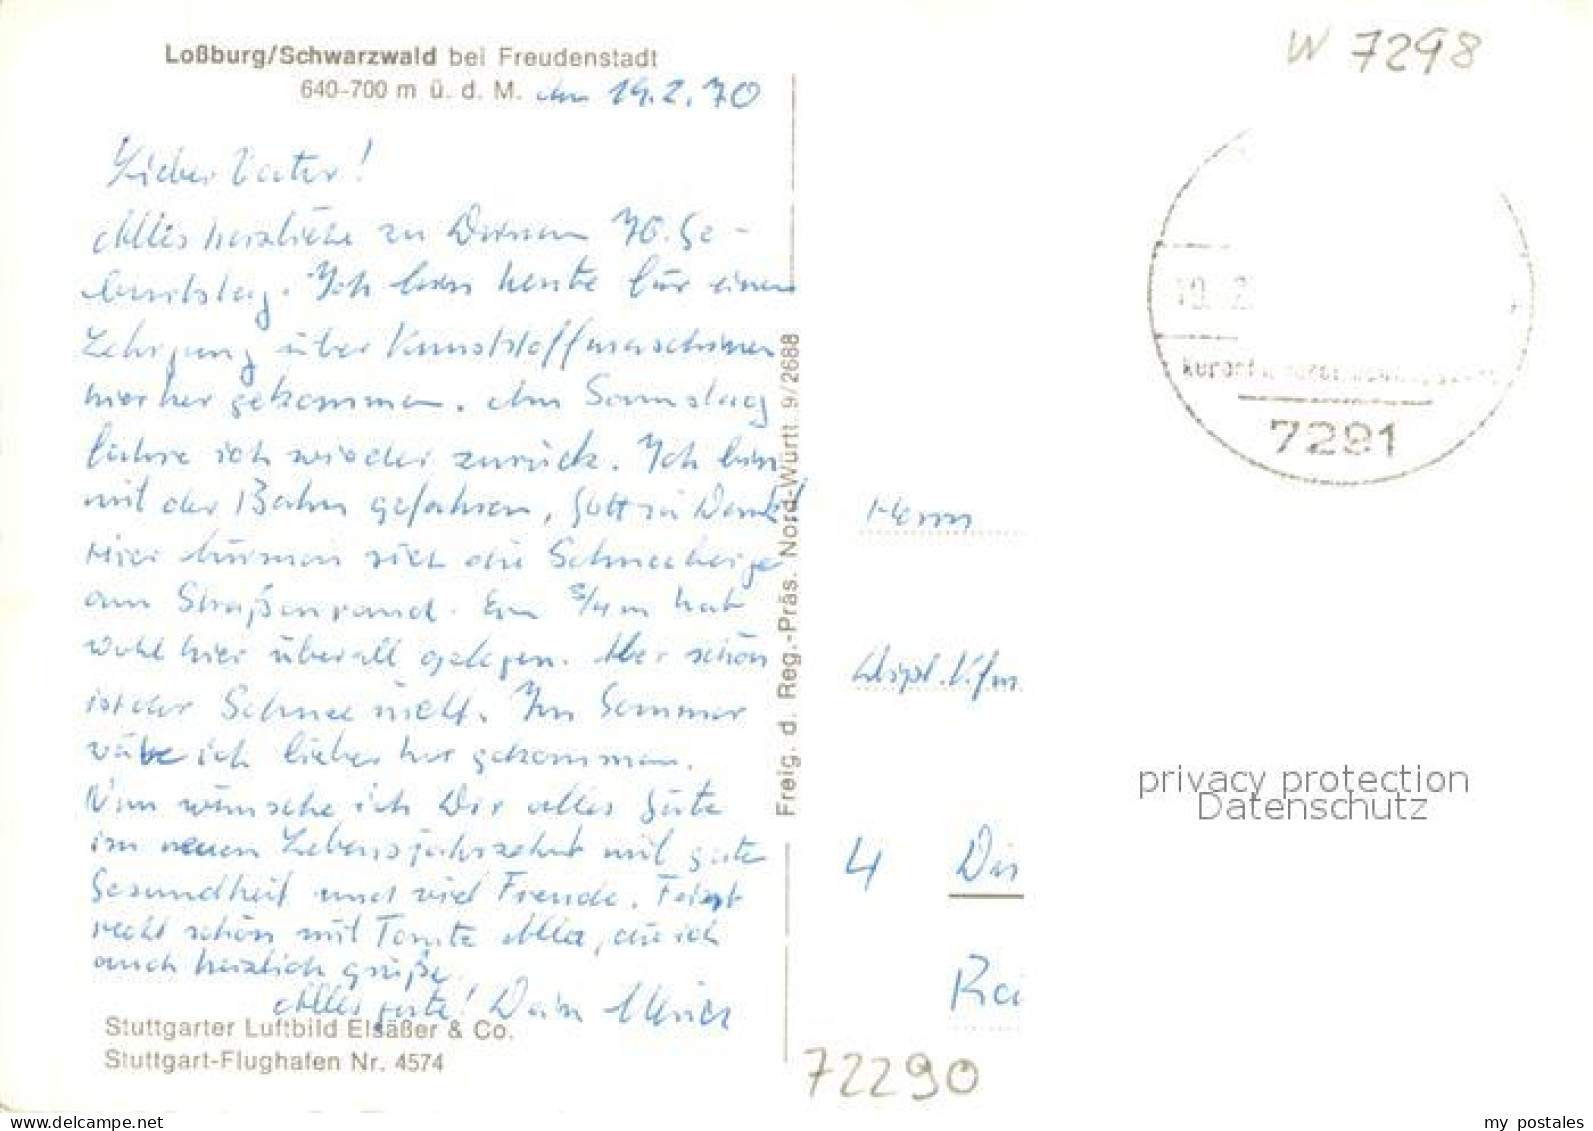 Loßburg/Schwarzwald bei Freudenstadt
640-700 m ü. d. M. den 19.2.70
W 7298
Lieber Vater!
Alles herzliche zu Deinem 70. Ge-
burtstag. Ich bin heute für einen
Lehrgang über Kunststoffmaschinen
hierher gekommen. Am Samstag
fahre ich wieder zurück. Ich bin
mit der Bahn gefahren, Gott sei Dank!
Hier türmen sich die Schneeberge
am Straßenrand. Ein 3/4 m hat
wohl hier überall gelegen. Aber schön
ist der Schnee nicht. Im Sommer
wäre ich lieber her gekommen.
Nun wünsche ich Dir alles Gute
im neuen Lebensjahrzehnt mit guter
Gesundheit und viel Freude. Feiert
recht schön mit Tante Alla, die ich
auch herzlich grüße.
Alles gute! Dein Ulrich
Stuttgarter Luftbild Elsäßer & Co.
Stuttgart-Flughafen Nr. 4574
Freig. d. Reg.-Präs. Nord-Württ. 9/2688
7291
Herrn
Dipl. Kfm.
4 Düs
Rei
72290
privacy protection
Datenschutz
my postales